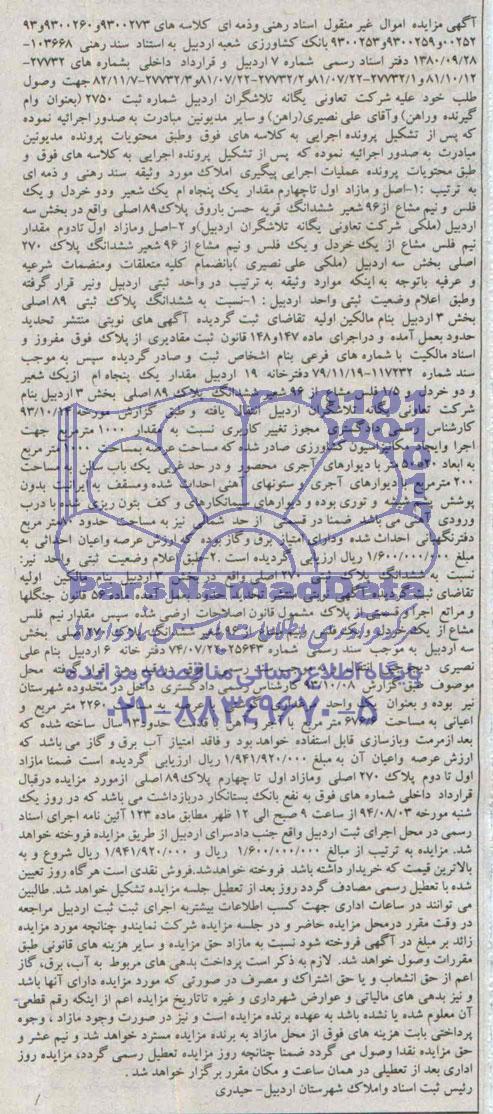 آگهی مزایده اموال غیر منقول اسناد رهنی وذمه ای کلاسه های ۹۳۰۰۲۷۳و۹۳۰۰۲۶۰و۹۳
۰۰۲۵۲و۹۳۰۰۲۵۹و۹۳۰۰۲۵۳ بانک کشاورزی شعبه اردبیل به استناد سند رهنی ۱۰۳۶۶۸-
۱۳۸۰/۰۹/۲۸ دفتر اسناد رسمی شماره ۷ اردبیل و قرارداد داخلی بشماره های ۲۷۷۳۲-
۸۱/۱۰/۱۲و۲۷۷۳۲/۱-۸۱/۰۷/۲۲و۲۷۷۳۲/۲-۸۱/۰۷/۲۲و۲۷۷۳۲/۳-۸۲/۱۱/۷ جهت وصول
طلب خود علیه شرکت تعاونی یگانه تلاشگران اردبیل شماره ثبت ۲۷۵۰ (بعنوان وام
گیرنده وراهن) وآقای علی نصیری(راهن) و سایر مدیونین مبادرت به صدور اجرائیه نموده
که پس از تشکیل پرونده اجرایی به کلاسه های فوق وطبق محتویات پرونده مدیونین
مبادرت به صدور اجرائیه نموده که پس از تشکیل پرونده اجرایی به کلاسه های فوق و
طبق محتویات پرونده عملیات اجرایی پیگیری املاک مورد وثیقه سند رهنی و ذمه ای
به ترتیب :۱-اصل و مازاد اول تاچهارم مقدار یک پنجاه ام یک شعیر ودو خردل و یک
فلس و نیم مشاع از۹۶ شعیر ششدانگ قریه حسن باروق پلاک۸۹ اصلی واقع در بخش سه
اردبیل (ملکی شرکت تعاونی یگانه تلاشگران اردبیل)و ۲-اصل ومازاد اول تادوم مقدار
نیم فلس مشاع از یک خردل و یک فلس و نیم مشاع از ۹۶ شعیر ششدانگ پلاک ۲۷۰
اصلی بخش سه اردبیل (ملکی علی نصیری )بانضمام کلیه متعلقات ومنضمات شرعیه
و عرفیه باتوجه به اینکه موارد وثیقه به ترتیب در واحد ثبتی اردبیل ونیر قرار گرفته
وطبق اعلام وضعیت ثبتی واحد اردبیل :۱-نسبت به ششدانگ پلاک ثبتی ۸۹ اصلی
بخش ۳ اردبیل بنام مالکین اولیه تقاضای ثبت گردیده آگهی های نوبتی منتشر تحدید
حدود بعمل آمده و دراجرای ماده ۱۴۷و۱۴۸ قانون ثبت مقادیری از پلاک فوق مفروز و
اسناد مالکیت با شماره های فرعی بنام اشخاص ثبت و صادر گردیده سپس به موجب
سند شماره ۱۱۷۲۳۲-۷۹/۱۱/۱۹ دفترخانه ۱۹ اردبیل مقدار یک پنجاه ام ازیک شعیر
و دو خردل و ۱/۵ فلس مشاع از ۹۶ شعیر ششدانگ پلاک ۸۹ اصلی بخش ۳ اردبیل بنام
شرکت تعاونی یگانه تلاشگران اردبیل انتقال یافته و طبق گزارش مورخه ۹۳/۱۰/۱۴
کارشناس رسمی دادگستری مجوز تغییر کاربری نسبت به مقدار ۱۰۰۰ مترمربع جهت
اجرا وایجاد مکانیزاسیون کشاورزی صادر شده که مساحت عرصه بمساحت ۱۰۰۰ متر مربع
به ابعاد ۲۰*۵۰ متر با دیوارهای آجری محصور و در حد غربی یک باب سالن به مساحت
۲۰۰ مترمربع با دیوارهای آجری و ستونهای آهنی احداث شده ومسقف به ایرانیت بدون
پوشش شیشه و توری بوده و دیوارهای سیمانکارهای و کف بتون ریزی شده با درب
ورودی آهنی می باشد ضمنا در قسمتی از حد شمالی نیز به مساحت حدود متر مربع
دفترنگهبانی احداث شده ودارای امتیاز برق وگاز بوده که ارزش عرصه واعیان احداثی به
مبلغ ۱/۶۰۰/۰۰۰/۰۰۰ ریال ارزیابی گردیده است .۲-طبق اعلام وضعیت ثبتی واحد نیز:
نسبت به ششدانگ پلاک ثبتی ۲۷۰ اصلی واقع در بخش ۳ اردبیل بنام مالکین اولیه
تقاضای ثبت گردیده آگهی نوبتی منتشر تحدید حدود بعمل آمده ماده ۵۶ قانون جنگلها
و مراتع اجرا و قسمتی از پلاک مشمول قانون اصلاحات ارضی شده سپس مقدار نیم فلس
مشاع از یک خردل و یک فلس و نیم مشاع از ۹۶ شعیر ششدانگ پلاک ۲۷۰ اصلی بخش
سه اردبیل به موجب سند رسمی شماره ۲۵۶۴۳-۷۴/۰۷/۲۶ دفتر خانه ۶ اردبیل بنام علی
نصیری موجب سند رسمی قرار گرفته محل
موصوف طبق گزارش ۹۳/۱۰/۰۸ کارشناس رسمی دادگستری داخل در محدوده شهرستان
نیر بوده و بعنوان واحد عرصه به مساحت ۲۲۶۰ متر مربع و
اعیانی به مساحت متر مربع با آجر و آهن با قدمت حدود۱۳ سال ساخته شده که
بعد ازمرمت وبازسازی قابل استفاده خواهد بود و فاقد امتیاز آب برق و گاز می باشد که
ارزش عرصه واعیان آن به مبلغ ۱/۹۴۱/۹۲۰/۰۰۰ ریال ارزیابی گردیده است ضمنا مازاد
اول تا دوم پلاک ۲۷۰ اصلی ومازاد اول تا چهارم پلاک۸۹ اصلی ازمورد مزایده درقبال
قرارداد داخلی شماره های فوق به نفع بانک بستانکار دربازداشت می باشد که در روز یک
شنبه مورخه ۹۴/۰۸/۰۳ از ساعت ۹ صبح الی ۱۲ ظهر مطابق ماده ۱۲۳ آئین نامه اجرای اسناد
رسمی در محل اجرای ثبت اردبیل واقع جنب دادسرای اردبیل از طریق مزایده فروخته خواهد
شد. مزایده به ترتیب از مبالغ ۱/۶۰۰/۰۰۰/۰۰۰ ریال و ۱/۹۴۱/۹۲۰/۰۰۰ ریال شروع و به
بالاترین قیمت که خریدار داشته باشد فروخته خواهدشد.فروش نقدی است هرگاه روز تعیین
شده با تعطیل رسمی مصادف گردد روز بعد از تعطیل جلسه مزایده تشکیل خواهد شد. طالبین
می توانند در ساعات اداری جهت کسب اطلاعات بیشتربه اجرای ثبت ثبت اردبیل مراجعه
در وقت مقرر درمحل مزایده حاضر و در جلسه مزایده شرکت نمایندو چنانچه مورد مزایده
زائد بر مبلغ در آگهی فروخته شود نسبت به مازاد حق مزایده و سایر هزینه های قانونی طبق
مقررات وصول خواهد شد. لازم به ذکر است پرداخت بدهی های مربوط به آب، برق، گاز
اعم از حق انشعاب و یا حق اشتراک و مصرف در صورتی که مورد مزایده دارای آنها باشد
و نیز بدهی های مالیاتی و عوارض شهرداری و غیره تاتاریخ مزایده اعم از اینکه رقم قطعی-
آن معلوم شده یا نشده باشد به عهده برنده مزایده است و نیز در صورت وجود مازاد ، وجوه
پرداختی بابت هزینه های فوق از محل مازاد به برنده مزایده مسترد خواهد شد و نیم عشر و
حق مزایده نقدا وصول می گردد ضمنا چنانچه روز مزایده تعطیل رسمی گردد، مزایده روز
اداری بعد از تعطیلی در همان ساعت و مکان مقرر برگزار خواهد شد .
رئیس ثبت اسناد واملاک شهرستان اردبیل- حیدری
ParsNamadData
پایگاه اطلاع رسانی مناقصه و مزایده
۰۲۱-۸۸۳۴۹۶۷۰-۵